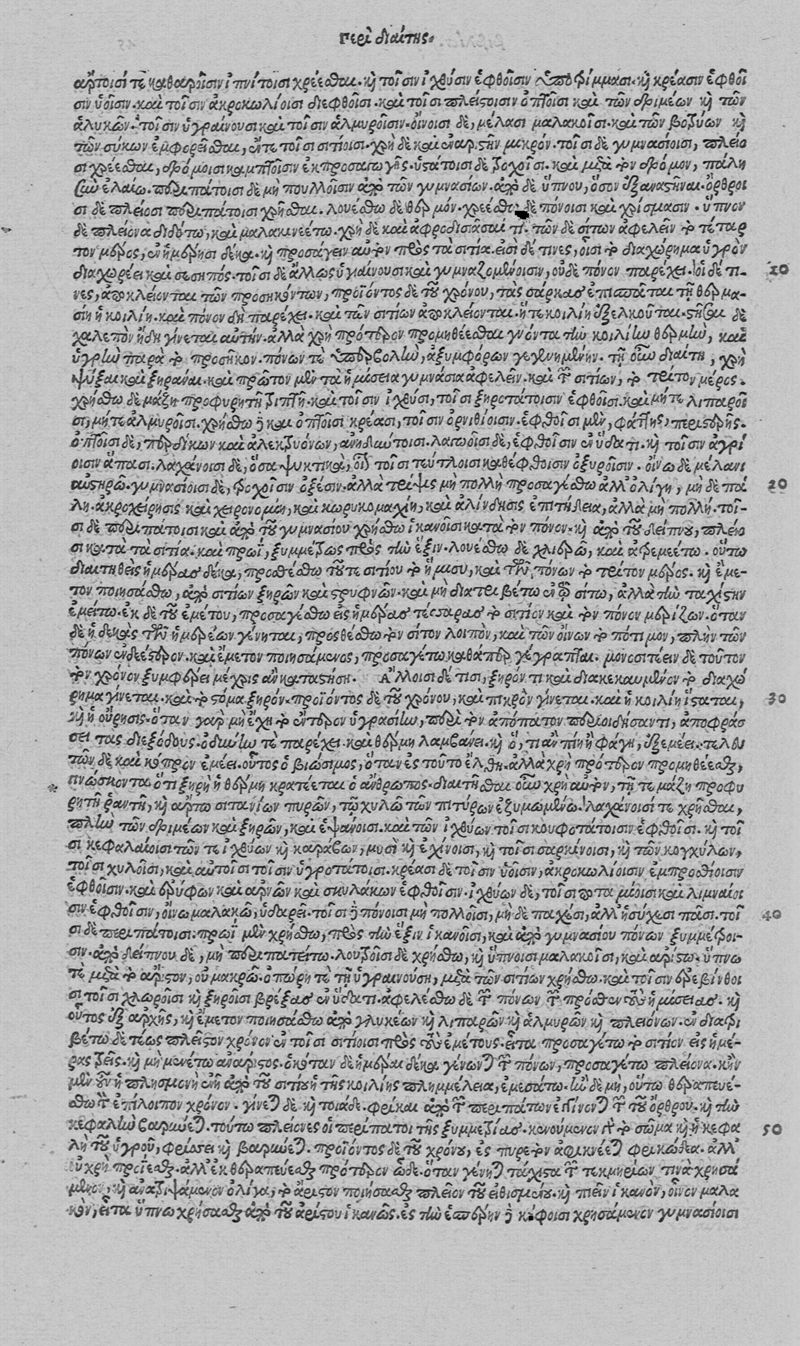 Περὶ διαίτης.
ἄρτοισί τε καθαροῖσιν ἰπνίτοισι χρέεσθαι. καὶ τοῖσιν ἰχθύσιν ἑφθοῖσιν ὑποτρίμμασι. καὶ κρέασιν ἑφθοῖ
σιν ὑοῖσιν. καὶ τοῖσιν ἀκροκωλίοισι διεφθοῖσι. καὶ τοῖσι πλείστοισιν ὀπτοῖσι καὶ τῶν δριμέων καὶ τῶν
ἁλυκῶν. τοῖσιν ὑγραίνουσι καὶ τοῖσιν ἁλμυροῖσιν. οἴνοισι δὲ, μέλασι μαλακοῖσι. καὶ τῶν βοτρύων καὶ
τῶν σύκων ἐμφορεῖσθαι, ἔν τε τοῖσι σιτίοισι. χρὴ δὲ καὶ ἐναριστῆν μικρόν. τοῖσι δὲ γυμνασίοισι, πλείο
σι χρέεσθαι, δρόμοισι καμπτοῖσιν ἐκ προσαγωγῆς. ὑστάτοισι δὲ τροχοῖσι. καὶ μετὰ τὸν δρόμον, πάλῃ
ἐν ἐλαίῳ. περιπάτοισι δὲ μὴ πουλλοῖσιν ἀπὸ τῶν γυμνασίων. ἀπὸ δείπνου, ὅσον ἐξαναστῆναι. ὄρθροι
σι δὲ πλείοσι περιπάτοισι χρῆσθαι. λουέσθω δὲ θερμόν. χρεέσθω δὲ πόνοισι καὶ χρίσμασιν. ὕπνον
δὲ πλείονα διδότω, καὶ μαλακευνείτω. χρὴ δὲ καὶ ἀφροδισιάσαι τι. τῶν δὲ σίτων ἀφελεῖν τὸ τέταρ
τον μέρος, ἐν ἡμέρῃσι δέκα. καὶ προσάγειν αὐτὸν πρὸς τὰ σιτία. εἰσὶ δέ τινες, οἷσι τὸ διαχώρημα ὑγρὸν
διαχωρέει καὶ σεσηπός. τοῖσι δὲ ἄλλως ὑγιαίνουσι καὶ γυμναζομένοισιν, οὐδὲ πόνον παρέχει. οἱ δέ τι-
νες, ἀποκλείονται τῶν προσηκόντων, προϊόντος δὲ τοῦ χρόνου, τὰς σάρκας ἐπισπᾶται τῇ θερμα-
σίῃ ἡ κοιλίη. καὶ πόνον δὴ παρέχει. καὶ τῶν σιτίων ἀποκλείονται. ἥ τε κοιλίη ἐξελκοῦται. στῆσαι δὲ
χαλεπὸν ἤδη γίνεται αὐτήν. ἀλλὰ χρὴ πρότερον προμηθέεσθαι γνόντα τὴν κοιλίην θερμὴν, καὶ
ὑγρὴν παρὰ τὸ προσῆκον. πόνων τε ὑπερβολὴν, ἀξυμφόρων γεγενημένην. τῇ οὖν διαίτῃ, χρὴ
ψῦξαι καὶ ξηρᾶναι. καὶ πρῶτον μὲν τὰ ἡμίσεα γυμνάσια ἀφελεῖν. καὶ τῶν σιτίων, τὸ τρίτον μέρος.
χρῆσθω δὲ μάζῃ προφυρητῇ τριπτῇ. καὶ τοῖσιν ἰχθύσι, τοῖσι ξηροτάτοισιν ἑφθοῖσι. καὶ μήτε λιπαροῖ
σι, μήτε ἁλμυροῖσι. χρῆσθω δὲ καὶ ὀπτοῖσι κρέασι, τοῖσιν ὀρνιθίοισιν. ἑφθοῖσι μὲν, φάττης, περιστερῆς.
ὀπτοῖσι δὲ, περδίκων καὶ ἀλεκτρυόνων, ἀνηδύντοισι. λαγώοισι δὲ, ἑφθοῖσιν ἐν ὕδατι. καὶ τοῖσιν ἀγρί
οισιν ἅπασι. λαχάνοισι δὲ, ὅσα ψυκτικά, οἷον τοῖσι τεύτλοισι καθέφθοισιν ὀξυροῖσιν. οἴνῳ δὲ μέλανι
αὐστηρῷ. γυμνασίοισι δὲ, τροχοῖσιν ὀξέσιν. ἀλλὰ τρίψις μὴ πολλὴ προσαγέσθω ἀλλ' ὀλίγη, μὴ δὲ πά
λη. ἀκροχείρησις καὶ χειρονομίη, καὶ κωρυκομαχίη, καὶ ἀλίνδησις ἐπιτήδεια, ἀλλὰ μὴ πολλή. τοῖ-
σι δὲ περιπάτοισι καὶ ἀπὸ τοῦ γυμνασίου χρῆσθω ἱκανοῖσι κατὰ τὸν πόνον. καὶ ἀπὸ τοῦ δείπνου, πλείο
σι κατὰ τὰ σιτία. καὶ πρωῒ, ξυμμέτρως πρὸς τὴν ἕξιν. λουέσθω δὲ χλιερῷ, καὶ ἀτρεμεέτω. οὕτω
διαιτηθεὶς ἡμέρας δέκα, προσθέσθω τοῦ τε σιτίου τὸ ἥμισυ, καὶ τῶν πόνων τὸ τρίτον μέρος. καὶ ἔμε-
τον ποιησάσθω, ἀπὸ σιτίων ξηρῶν καὶ στρυφνῶν. καὶ μὴ διατριβέτω ἐν τῷ σίτῳ, ἀλλὰ τὴν ταχίστην
ἐμείτω. ἐκ δὲ τοῦ ἐμέτου, προσαγέσθω εἰς ἡμέρας τέσσαρας τὸ σιτίον καὶ τὸν πόνον μερίζων. ὅταν
δὲ ἡ δεκὰς τῶν ἡμερέων γένηται, προσθέσθω τὸν σῖτον λοιπὸν, καὶ τῶν οἴνων τὸ πότιμον, πλὴν τῶν
πόνων ἐνδεέστερον. καὶ ἔμετον ποιησάμενος, προσαγέτω καθάπερ γέγραπται. μονοσιτέειν δὲ τοῦτον
τὸν χρόνον ξυμφέρει μέχρις ἂν καταστήσῃ. Ἄλλοισι δέ τισι, ξηρόν τι καὶ διακεκαυμένον τὸ διαχώ
ρημα γίνεται. καὶ τὸ στόμα ξηρόν. προϊόντος δὲ τοῦ χρόνου, καὶ πικρὸν γίνεται. καὶ ἡ κοιλίη ἵσταται,
καὶ ἡ οὔρησις. ὅταν γὰρ μὴ ἔχῃ τὸ ἔντερον ὑγρασίην, περὶ τὸν ἀπόπατον περιοιδήσαντι, ἀποφράσ
σει τὰς διεξόδους. ὀδύνην τε παρέχει. καὶ θέρμη λαμβάνει. καὶ ὅ, τι ἂν πίῃ ἢ φάγῃ, ἐξεμέει. τελευ
τῶν δὲ καὶ κόπρον ἐμέει. οὗτος οὐ βιώσιμος, ὅταν ἐς τοῦτο ἔλθῃ. ἀλλὰ χρὴ πρότερον προμηθέεσθαι,
γινώσκοντα ὅτι ξηρῇ ἢ θέρμῃ κρατέεται ὁ ἄνθρωπος. διαιτῆσθαι οὖν χρὴ αὐτὸν, τῇ τε μάζῃ προφυ
ρητῇ ῥαντῇ, καὶ ἄρτῳ σιτανίων πυρῶν, τῷ χυλῷ τῶν πιτύρων ἐξυμωμένῳ. λαχάνοισί τε χρῆσθαι,
πλὴν τῶν δριμέων καὶ ξηρῶν, καὶ ἑψανοῖσι. καὶ τῶν ἰχθύων τοῖσι κουφοτάτοισιν ἑφθοῖσι. καὶ τοῖ
σι κεφαλαίοισι τῶν τε ἰχθύων καὶ καράβων, μυσὶ καὶ ἐχίνοισι, καὶ τοῖσι καρκίνοισι, καὶ τῶν κογχύλων,
τοῖσι χυλοῖσι, καὶ αὐτοῖσι τοῖσιν ὑγροτάτοισι. κρέασι δὲ τοῖσιν ὑοῖσιν, ἀκροκωλίοισιν ἐμπροσθίοισιν
ἑφθοῖσιν. καὶ ἐρίφων καὶ ἀρνῶν καὶ σκυλάκων ἑφθοῖσιν. ἰχθύων δὲ, τοῖσι ποταμίοισι καὶ λιμναίοι
σιν ἑφθοῖσιν, οἴνῳ μαλακῷ, ὑδαρεῖ. τοῖσι δὲ πόνοισι μὴ πολλοῖσι, μὴ δὲ παχέσι, ἀλλ' ἡσύχεσι πᾶσι. τοῖ
σι δὲ περιπάτοισι. πρωῒ μὲν χρῆσθω, πρὸς τὴν ἕξιν ἱκανοῖσι, καὶ ἀπὸ γυμνασίου πόνων ξυμμέτροι-
σιν. ἀπὸ δείπνου δὲ, μὴ περιπατείτω. λουτροῖσι δὲ χρῆσθω, καὶ ὕπνοισι μαλακοῖσι, καὶ ἀρίστῳ. ὕπνῳ
τε μετὰ τὸ ἄριστον, οὐ μακρῷ. ὀπώρῃ τε τῇ ὑγραινούσῃ, μετὰ τῶν σιτίων χρῆσθω. καὶ τοῖσιν ἐρεβίνθοι
σι τοῖσι χλωροῖσι καὶ ξηροῖσι βρέξας ἐν ὕδατι. ἀφελέσθω δὲ τῶν πόνων τῶν πρόσθεν τοὺς ἡμίσεας. καὶ
οὗτος ἐξ ἀρχῆς, καὶ ἔμετον ποιησάσθω ἀπὸ γλυκέων καὶ λιπαρῶν καὶ ἁλμυρῶν καὶ πλειόνων. ἐνδιατρι
βέτω δὲ τέως πλεῖστον χρόνον ἐν τοῖσι σιτίοισι πρὸς τοὺς ἐμέτους. εἶτα προσαγέτω τὸ σιτίον εἰς ἡμέ-
ρας τρεῖς. καὶ μὴ μενέτω ἀνάριστος. ὁκόταν δὲ ἡμέραι δέκα γένωνται τῶν πόνων, προσαγέτω πλείονα. κἢν
μὲν οὖν ἢ πλησμονὴ ἐνῇ ἀπὸ τοῦ σιτίου ἢ τῆς κοιλίης πλημμέλεια, ἐμεσάτω. ἢν δὲ μὴ, οὕτω θεραπευέ-
σθω τὸν ἐπίλοιπον χρόνον. γίνεται δὲ καὶ τοιάδε. φρῖκαι ἀπὸ τῶν περιπάτων ἐγγίνονται τῶν τοῦ ὄρθρου. καὶ τὴν
κεφαλὴν βαρύνεται. τούτῳ πλείονες οἱ περίπατοι τῆς ξυμμετρίας. κενούμενον τὸ σῶμα καὶ ἡ κεφα
λὴ τοῦ ὑγροῦ, φρίσσει καὶ βαρύνεται. προϊόντος δὲ τοῦ χρόνου, ἐς πυρετὸν ἀφικνέεται φρικώδεα. ἀλλ'
οὐ χρὴ προΐεσθαι, ἀλλ' ἐκθεραπεύεσθαι πρότερον ὧδε. ὅταν γένηται τάχιστα τῶν τεκμηρίων τινὰ χρησά
μενον, καὶ ἀνατριψάμενον ὀλίγα, τὸ ἄριστον ποιήσασθαι πλεῖον τοῦ εἰθισμένου. καὶ πιεῖν ἱκανὸν, οἶνον μαλα
κὸν, εἶτα ὕπνῳ χρήσασθαι ἀπὸ τοῦ ἀρίστου ἱκανῶς. ἐς τὴν ἑσπέρην δὲ κούφοισι χρησάμενον γυμνασίοισι
10
20
30
40
50